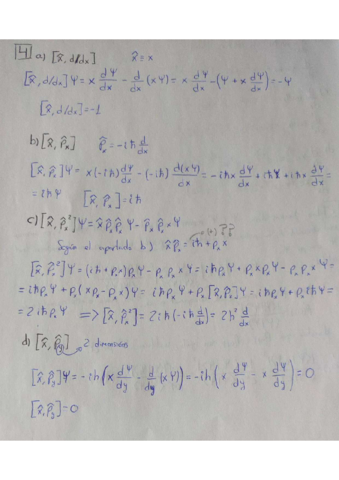 4 a) [x̂, d/dx] x̂ = x
[x̂, d/dx]Ψ = x dΨ/dx - d/dx (xΨ) = x dΨ/dx - (Ψ + x dΨ/dx) = -Ψ
[x̂, d/dx] = -1
b) [x̂, p̂x] p̂x = -iħ d/dx
[x̂, p̂x]Ψ = x(-iħ) dΨ/dx - (-iħ) d(xΨ)/dx = -iħx dΨ/dx + iħΨ + iħx dΨ/dx =
= iħΨ [x̂, p̂x] = iħ
c) [x̂, p̂x²]Ψ = x̂p̂xp̂xΨ - p̂xp̂xxΨ
Según el apartado b) x̂p̂x = iħ + pxx
[x̂, p̂x²]Ψ = (iħ + pxx)pxΨ - pxpxxΨ = iħpxΨ + pxxpxΨ - pxpxxΨ =
= iħpxΨ + px(xpx - pxx)Ψ = iħpxΨ + px[x̂, p̂x]Ψ = iħpxΨ + pxiħΨ =
= 2iħpxΨ => [x̂, p̂x²] = 2iħ(-iħ d/dx) = 2ħ² d/dx
d) [x̂, p̂y] 2 dimensiones
[x̂, p̂y]Ψ = -iħ(x dΨ/dy - d/dy (xΨ)) = -iħ(x dΨ/dy - x dΨ/dy) = 0
[x̂, p̂y] = 0